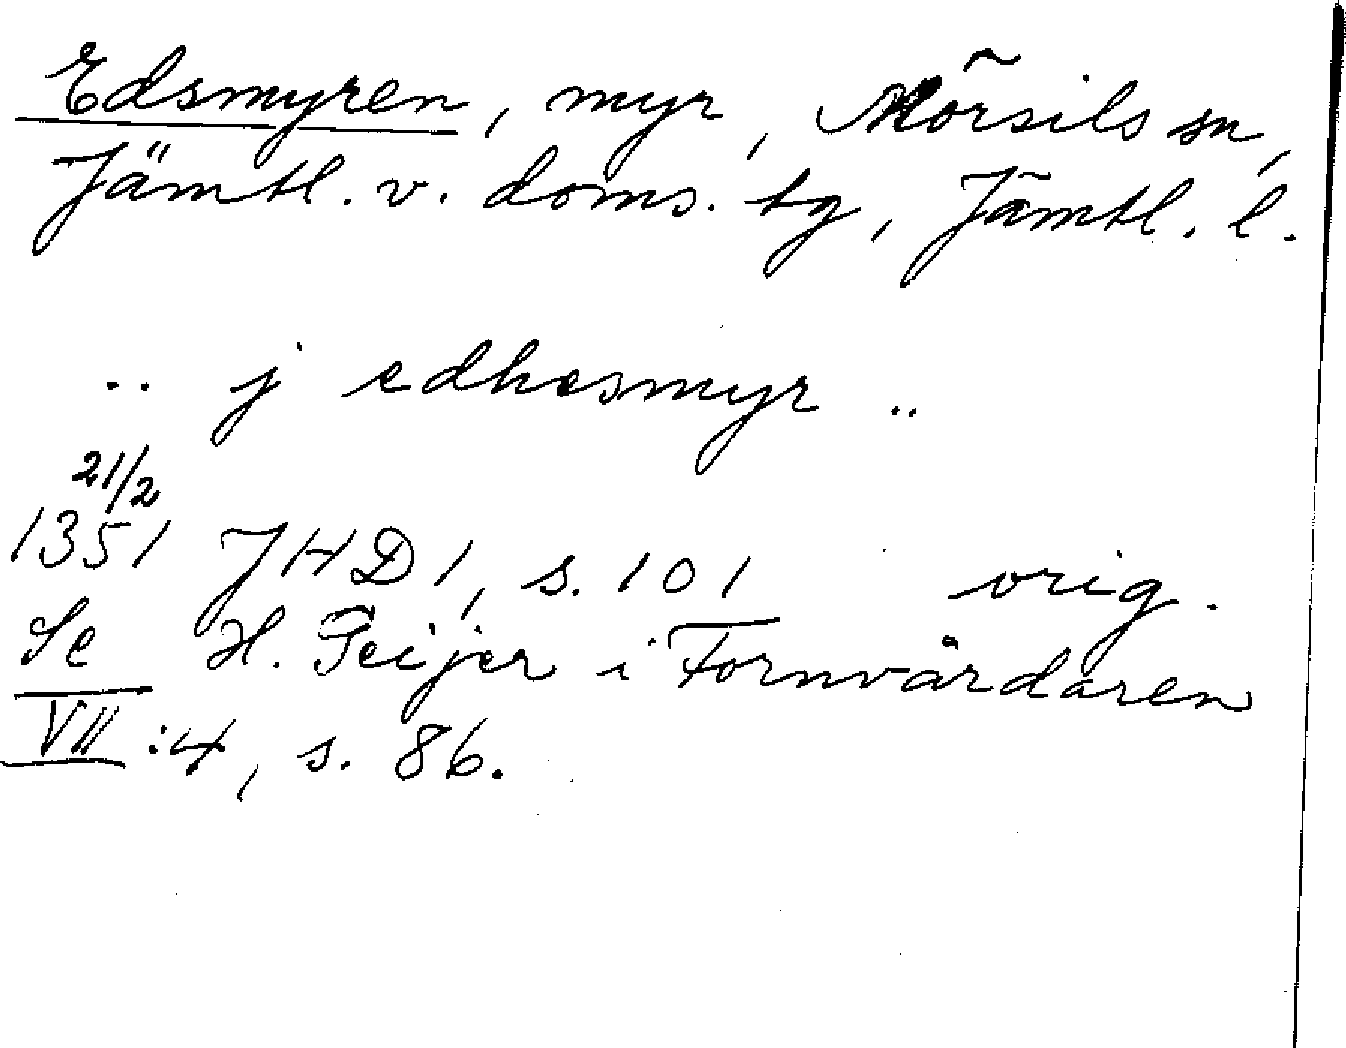 Edsmyren, myr, Mörsils sn,
Jämtl. v. doms. tg, Jämtl. l.
.. j edhesmyr ..
21/2
1351 JHD 1, s. 101 orig.
Se H. Geijer i Fornvårdaren
VII:4, s. 86.